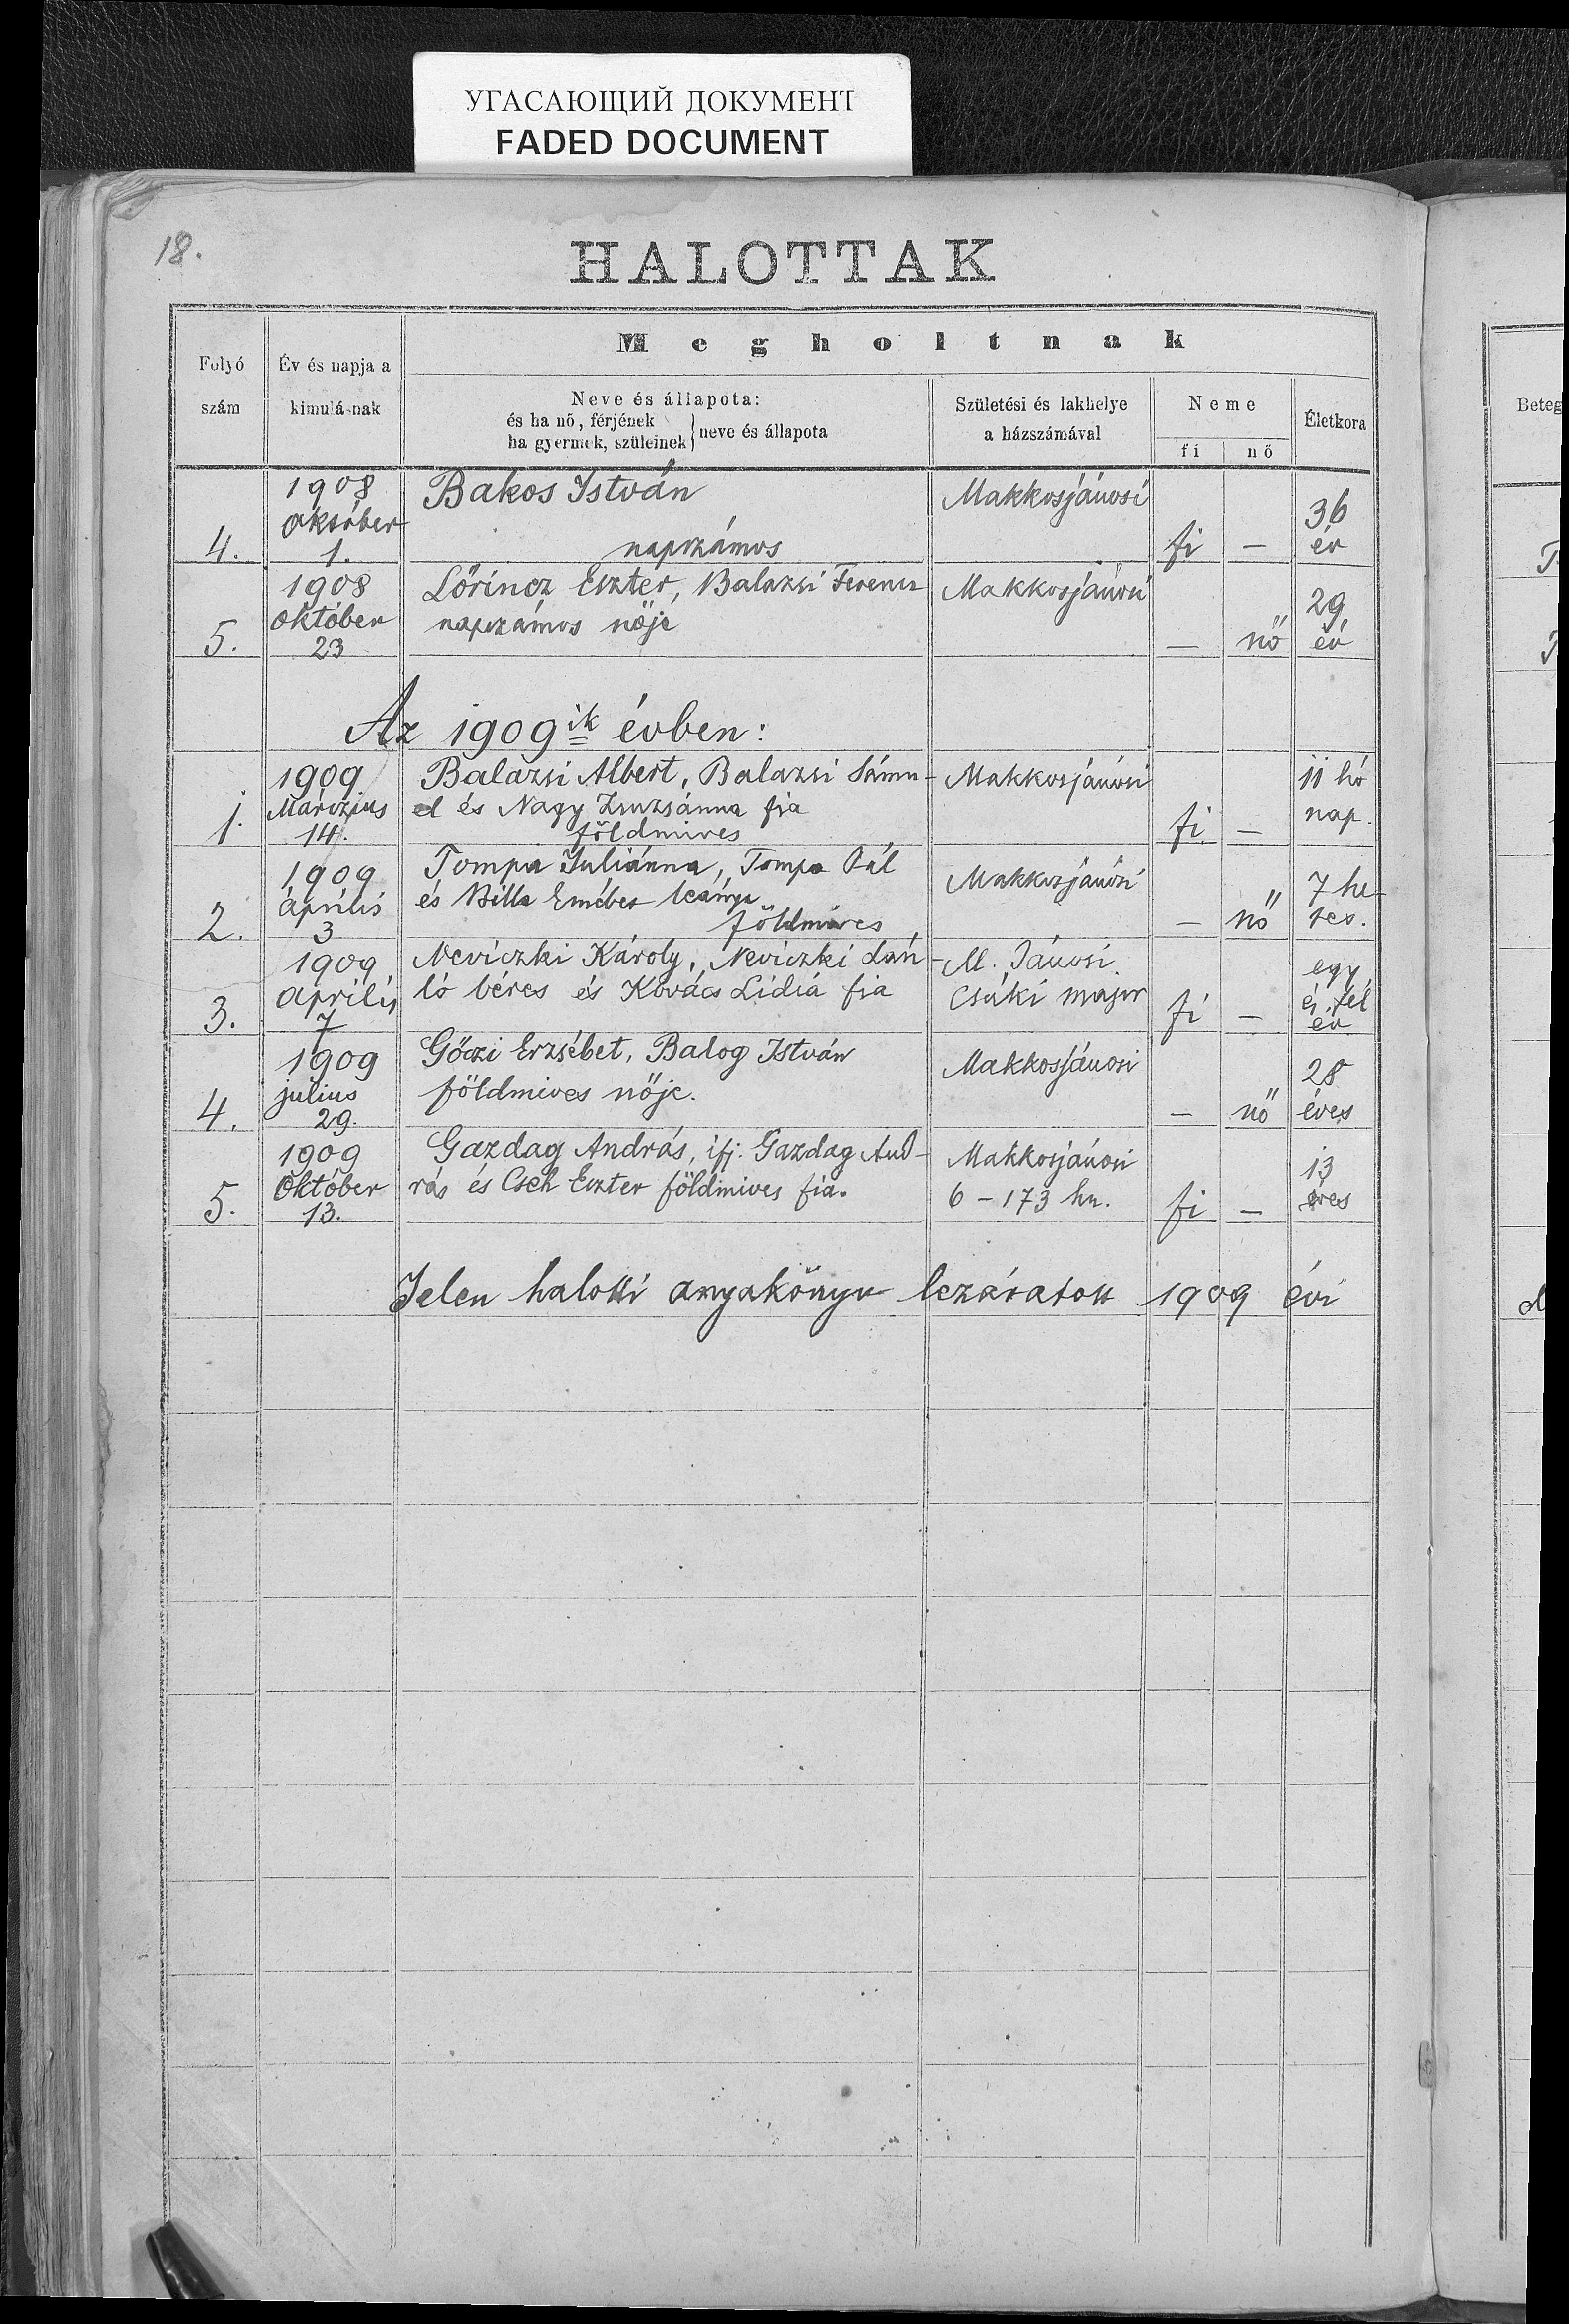 УГАСАЮЩИЙ ДОКУМЕНТ
FADED DOCUMENT
18.
HALOTTAK
Folyó szám
Év és napja a kimulásnak
Megholtnak
Neve és állapota:
és ha nő, férjének
ha gyermek, szüleinek } neve és állapota
Születési és lakhelye
a házszámával
Neme
fi nő
Életkora
Beteg
4. 1908 október 1. Bakos István napszámos Makkosjánosi fi — 36 év
5. 1908 október 23 Lőrincz Eszter, Balazsi Ferencz
napszámos nője Makkosjánosi — nő 29 év
Az 1909ik évben:
1. 1909 Márczius 14. Balazsi Albert, Balazsi Sámu-
el és Nagy Zsuzsánna fia
földmives Makkosjánosi fi. — 11 hó nap.
2. 1909 április 3 Tompa Juliánna, Tompa Pál
és Billa leánya
földmives Makkosjánosi — nő 7 he-
tes.
3. 1909 április 7 Neviczki Károly, Neviczki
ló béres és Kovács Lidiá fia M. Jánosi
Csáki major fi — egy
és fél
év
4. 1909 julius 29. Gőczi Erzsébet, Balog István
földmives nője. Makkosjánosi — nő 28
éves
5. 1909 Október 13. Gazdag András, ifj. Gazdag And-
rás és Cseh Eszter földmives fia. Makkosjánosi
6 – 173 hn. fi — 13
éves
Jelen halotti anyakönyv lezáratott 1909 évi